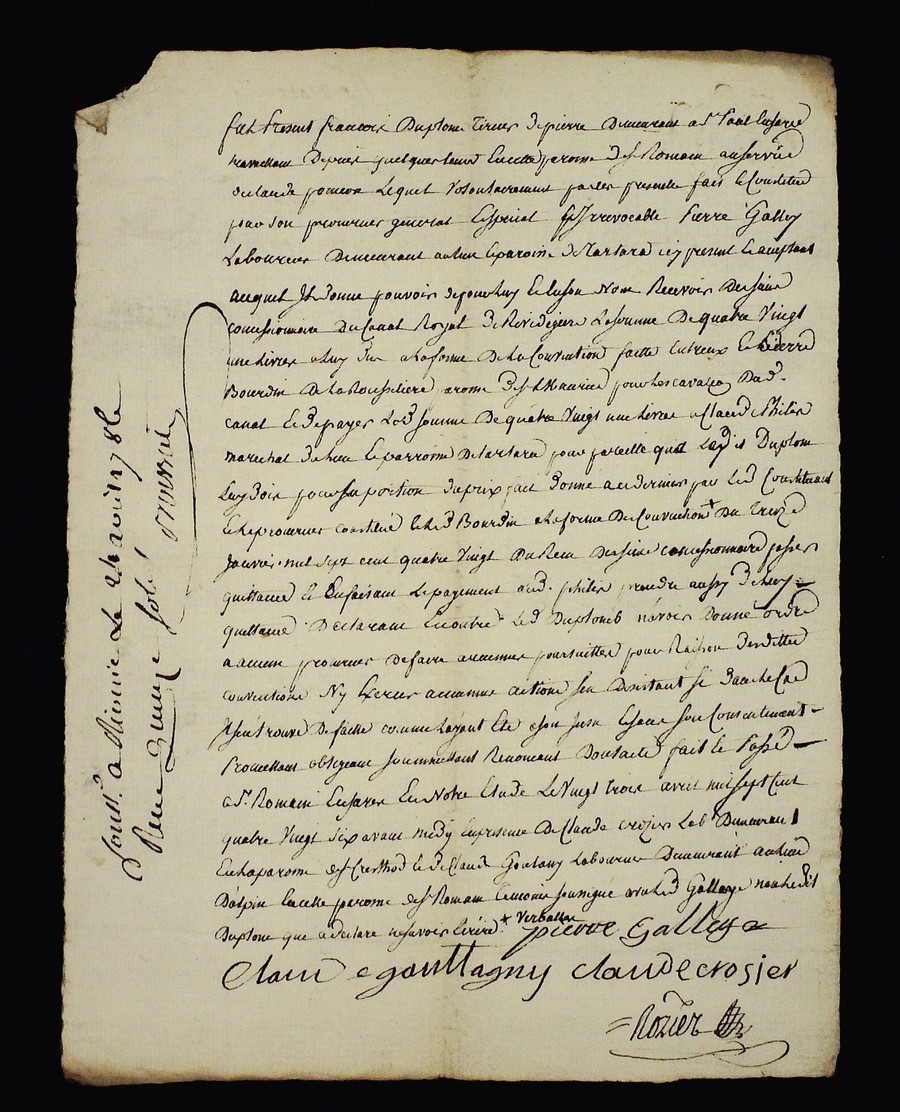 fut present francois Duplomb Tireur de pierre demeurant a St Paul Enjared
travaillant depuis quelques tems En cette paroisse de St Romain au service
de claude poncon Lequel volontairement par les presentes fait et constitue
pour son procureur general Especial & Irrevocable Pierre Galley
Laboureur demeurant au lieu Et paroisse de Tartara icy present Et acceptant
auquel Il donne pouvoir de pour luy Et En son Nom Recevoir des sieurs
concessionnaires du Canal Royal de Rivedegiere La somme de quatre vingt
une livres a luy due a la forme de la Convention faitte Entre eux Et Pierre
Bourdin de la Rousseliere paroisse de St Maurice pour Les cavalages Dud.
canal Et de payer Lad. somme de quatre vingt une livres a Claude Philis
marechal du lieu Et parroisse de Tartara pour pareille que Led. Duplomb
Luy doit pour sa portion du prix fait donné a ce dernier par Led. Constituant
Et le procureur constitué Et led. Bourdin a la forme de Convention + Du treize
Janvier mil sept cent quatre vingt Du Reçu des sieurs concessionnaires passer
quittance Et En faisant Le payement aud. philis prendre aussy de luy
quittance Declarant En outre Led. Duplomb n'avoir Donné ordre
a aucun procureur de faire aucunes poursuittes pour Raison desdittes
conventions Ny Exercer aucunne action s'en Desistant si dans le Cas
Il s'en trouve de faitte comme Layant Eté a son Insu Et sans son Consentement
Promettant obligeant soumettant Renoncant Dont acte fait Et Passé
a St Romain En jarez En Notre Etude Le vingt trois avril mil sept cent
quatre vingt six avant midy En presence de Claude crozier Lab. Demeurant
En la paroisse de St Et de Claude Goutany Laboureur Demeurant au lieu
Dalpin En cette paroisse de St Romain temoins soussignés avec led. Galley non led.
Duplomb que a declaré ne savoir Ecrire + Verballe
pierre Galley
Claude gouttagny claude crosier
Rozier
Cont.é a Le 24 avril 1786
Reçu quinze sols